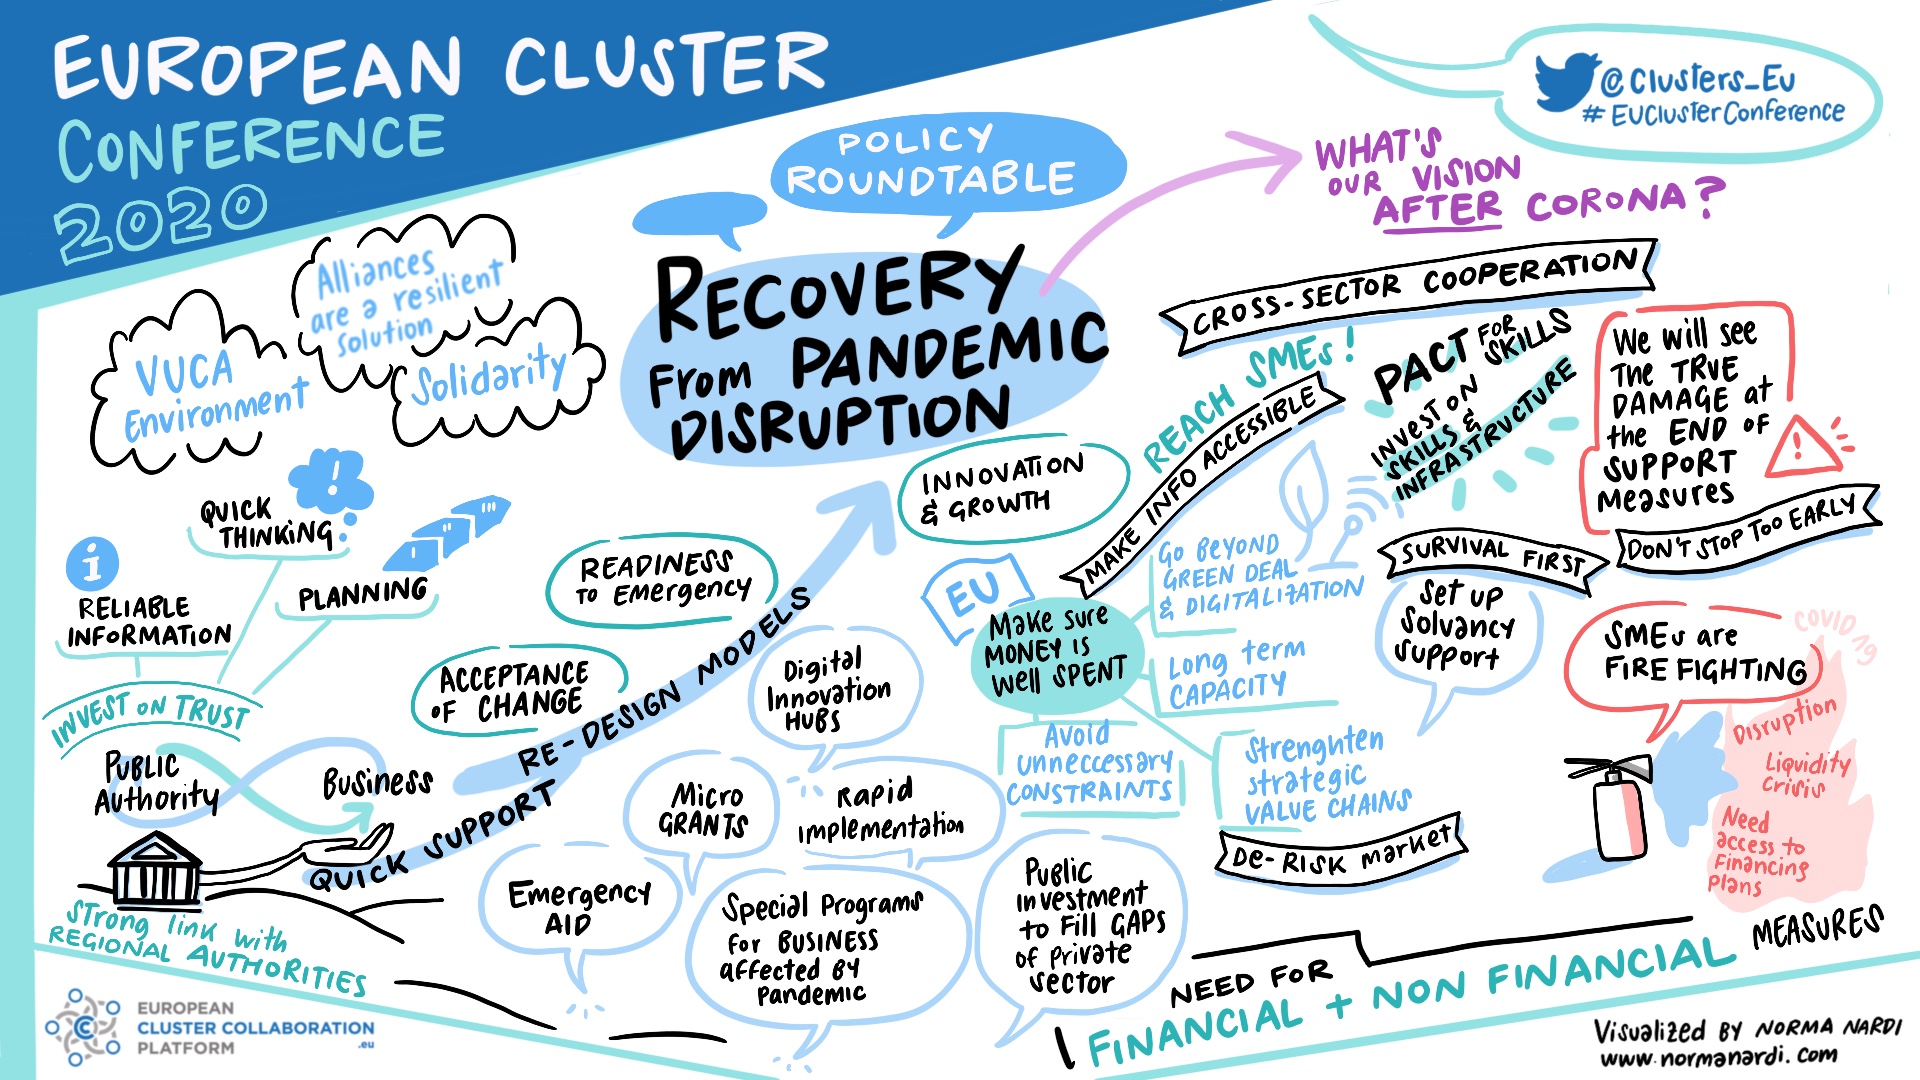 EUROPEAN CLUSTER
CONFERENCE
2020
@Clusters_Eu
#EUClusterConference
POLICY
ROUNDTABLE
RECOVERY
From PANDEMIC
DISRUPTION
WHAT'S
OUR VISION
AFTER CORONA?
Alliances
are a resilient
solution
VUCA
Environment
Solidarity
!
QUICK
THINKING
PLANNING
i
RELIABLE
INFORMATION
INVEST ON TRUST
PUBLIC
Authority
Business
Strong link with
REGIONAL AUTHORITIES
QUICK SUPPORT
RE-DESIGN MODELS
ACCEPTANCE
OF CHANGE
READINESS
TO Emergency
INNOVATION
& GROWTH
Digital
Innovation
HUBS
Micro
GRANTS
Rapid
implementation
Emergency
AID
Special Programs
for BUSINESS
affected BY
Pandemic
Public
investment
to Fill GAPS
of Private
Sector
CROSS-SECTOR COOPERATION
REACH SMEs!
MAKE INFO ACCESSIBLE
PACT FOR
SKILLS
INVEST ON
SKILLS &
INFRASTRUCTURE
EU
Make sure
MONEY IS
Well SPENT
Go BEYOND
GREEN DEAL
& DIGITALIZATION
Long term
CAPACITY
Avoid
unneccessary
CONSTRAINTS
Strenghten
strategic
VALUE CHAINS
DE-RISK market
We will see
The TRUE
DAMAGE at
the END OF
SUPPORT
Measures
!
DON'T STOP TOO EARLY
SURVIVAL FIRST
Set up
Solvancy
support
SMEs are
FIRE FIGHTING
COVID 19
Disruption
Liquidity
Crisis
Need
access to
Financing
Plans
NEED FOR
FINANCIAL + NON FINANCIAL
MEASURES
EUROPEAN
CLUSTER COLLABORATION
PLATFORM
.eu
Visualized BY NORMA NARDI
www.normanardi.com